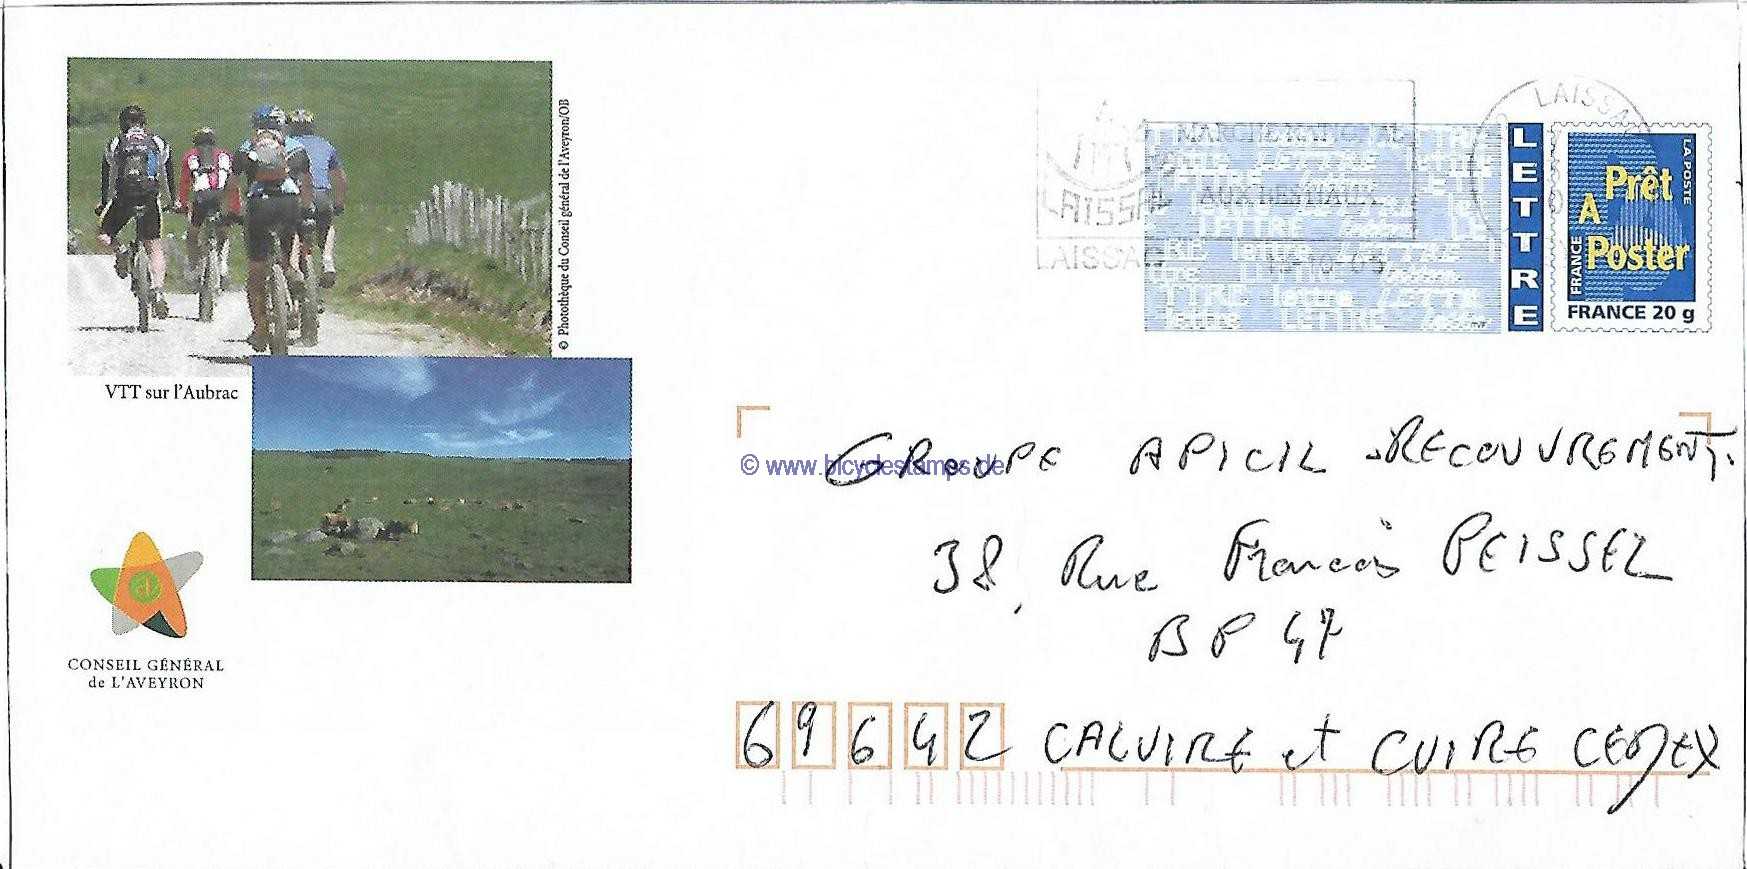 © Photothèque du Conseil général de l'Aveyron/OB
VTT sur l'Aubrac
CONSEIL GÉNÉRAL
de L'AVEYRON
LAISSAC
AUX BESTIAUX
LAISSAC
LAISSAC
LETTRE
LA POSTE
Prêt
A
Poster
FRANCE
FRANCE 20 g
© www.bicyclestamps.de
GROUPE APICIL - RECOUVREMENT.
38, Rue François PEISSEL
BP 47
69642 CALUIRE et CUIRE CEDEX